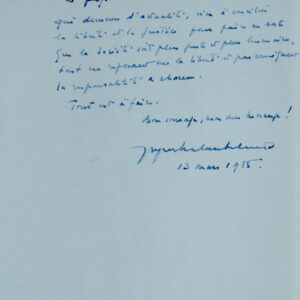 Le
qui demeure d'actualité, vise à concilier
la liberté et la justice pour faire en sorte
que la société soit plus juste et plus humaine,
tout en reposant sur la liberté et par conséquent
la responsabilité de chacun.
Tout est à faire.
Bon courage, mon cher
13 mars 1986.